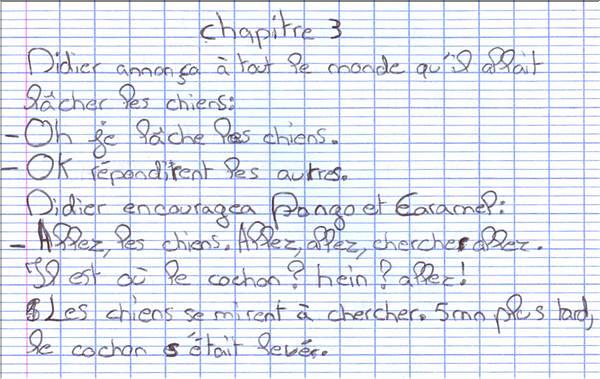 Chapitre 3
Didier annonça à tout le monde qu'il allait
lâcher les chiens:
- Oh je lâche les chiens.
- OK répondirent les autres.
Didier encouragea Pongo et Caramel:
- Allez, les chiens. Allez, allez, cherches allez.
Il est où le cochon? hein? allez!
Les chiens se mirent à chercher. 5mn plus tard,
le cochon s'était levée.